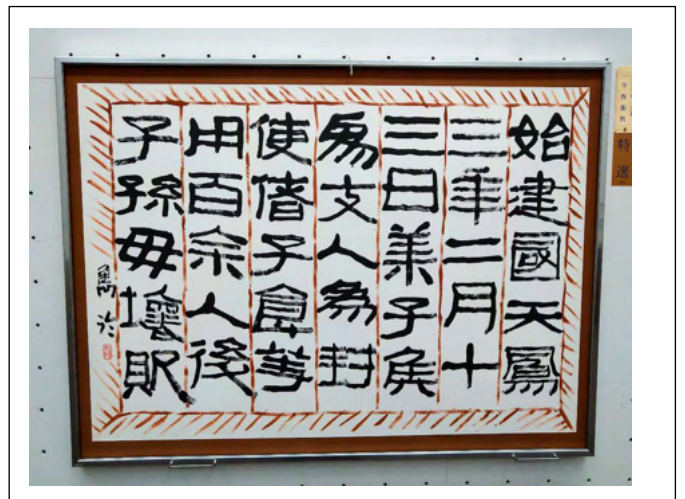 始建國天鳳
三年二月十
三日萊子侯
為支人為封
使偖子食等
用百余人後
子孫毋壞敗
特選